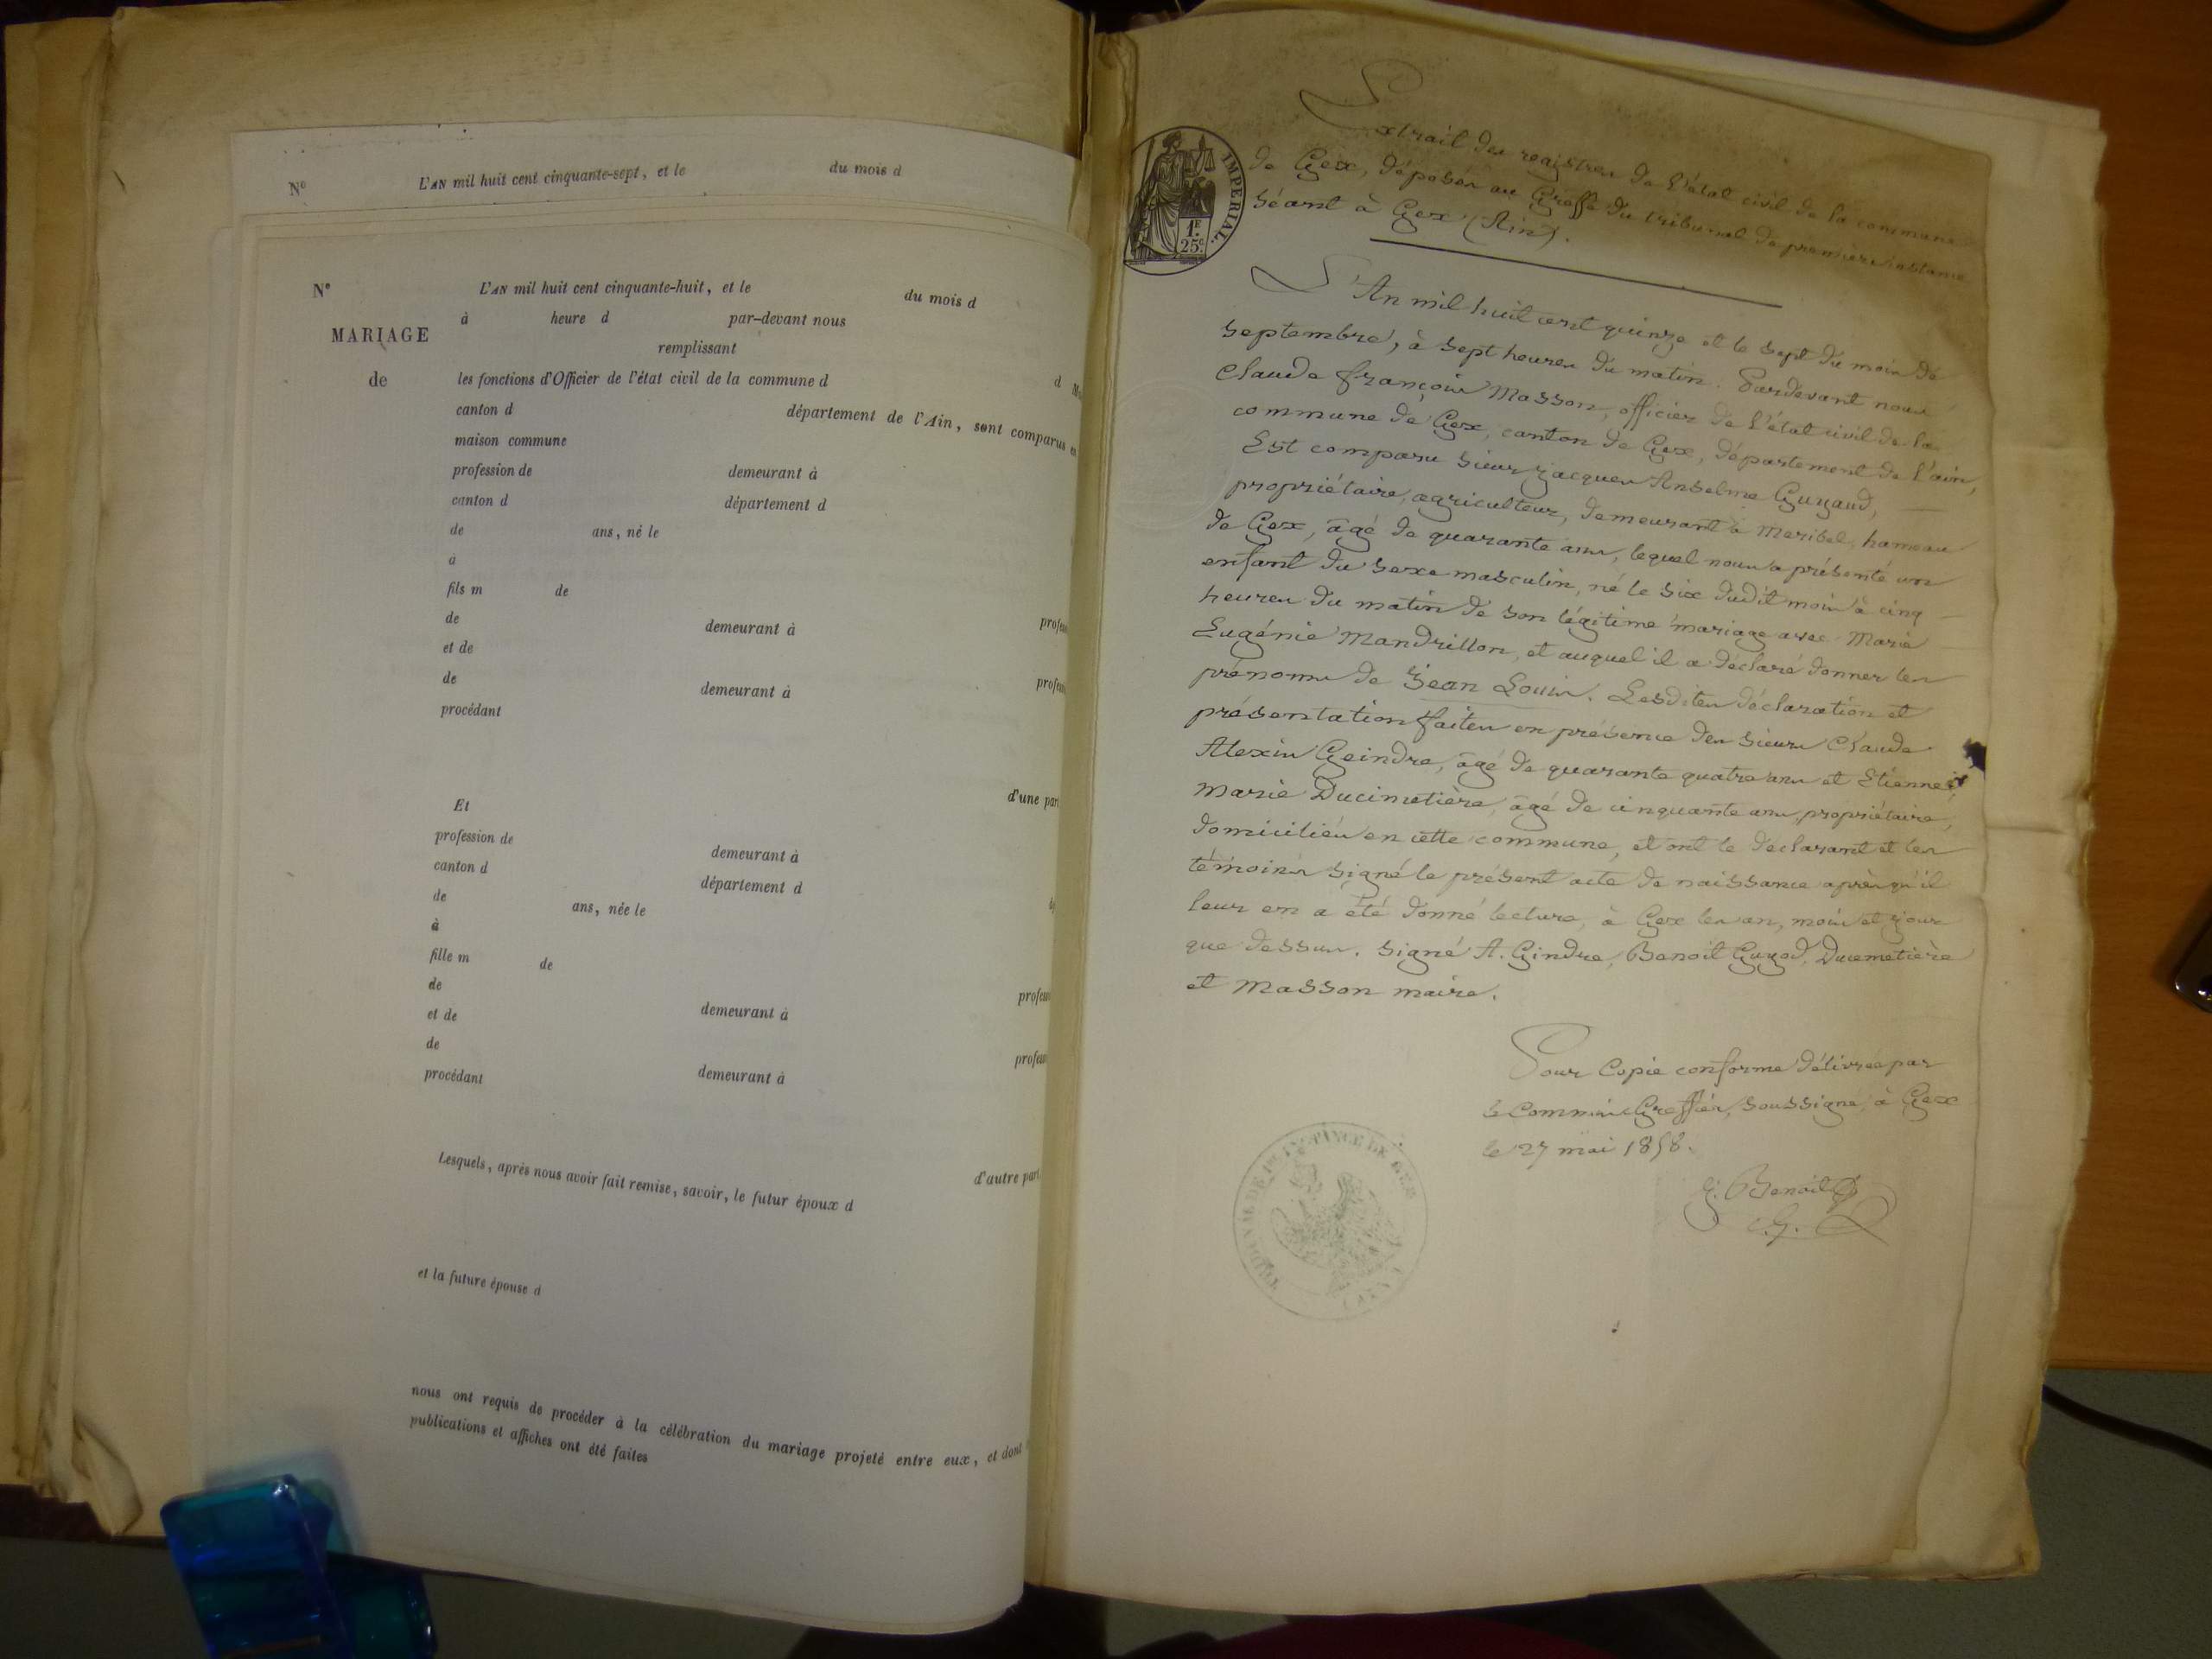 Nº L'AN mil huit cent cinquante-sept, et le du mois d
Nº L'AN mil huit cent cinquante-huit, et le du mois d
à heure d par-devant nous
MARIAGE
remplissant
de les fonctions d'Officier de l'état civil de la commune d d
canton d département de l'Ain, sont comparus en
maison commune
profession de demeurant à
canton d département d
de ans, né le
à
fils m de
de demeurant à profess
et de
de demeurant à profess
procédant
d'une part
Et
profession de demeurant à
canton d département d
de ans, née le
à
fille m de
de demeurant à profess
et de
de demeurant à profess
procédant
d'autre part
Lesquels, après nous avoir fait remise, savoir, le futur époux d
et la future épouse d
nous ont requis de procéder à la célébration du mariage projeté entre eux, et dont
publications et affiches ont été faites
IMPERIAL.
1F.
25c.
Extrait des registres de l'état civil de la commune
de Gex, déposés au Greffe du tribunal de première instance
séant à Gex (Ain).
L'An mil huit cent quinze et le sept du mois de
septembre, à sept heures du matin. Pardevant nous
Claude françois Masson, officier de l'état civil de la
commune de Gex, canton de Gex, département de l'ain,
Est comparu sieur jacques Anselme Guyaud,
propriétaire, agriculteur, demeurant à Meribel, hameau
de Gex, âgé de quarante ans, lequel nous a présenté un
enfant du sexe masculin, né le six dudit mois à cinq
heures du matin de son légitime mariage avec Marie
Eugénie Mandrillon, et auquel il a déclaré donner les
prénoms de Jean Louis. Lesdites déclaration et
présentation faites en présence des sieurs Claude
Alexis Geindre, âgé de quarante quatre ans et Etienne
marie Ducimetière, âgé de cinquante ans, propriétaire,
domiciliés en cette commune, et ont le déclarant et les
témoins signé le présent acte de naissance après qu'il
leur en a été donné lecture, à Gex les an, mois et jour
que dessus. signé A. Gindre, Benoit Guyod, Ducemetière
et Masson maire.
Pour Copie conforme délivrée par
le Commis Greffier, soussigné, à Gex
le 27 mai 1858.
Benoit
C. G.
TRIBUNAL DE 1re INSTANCE DE GEX
(AIN)